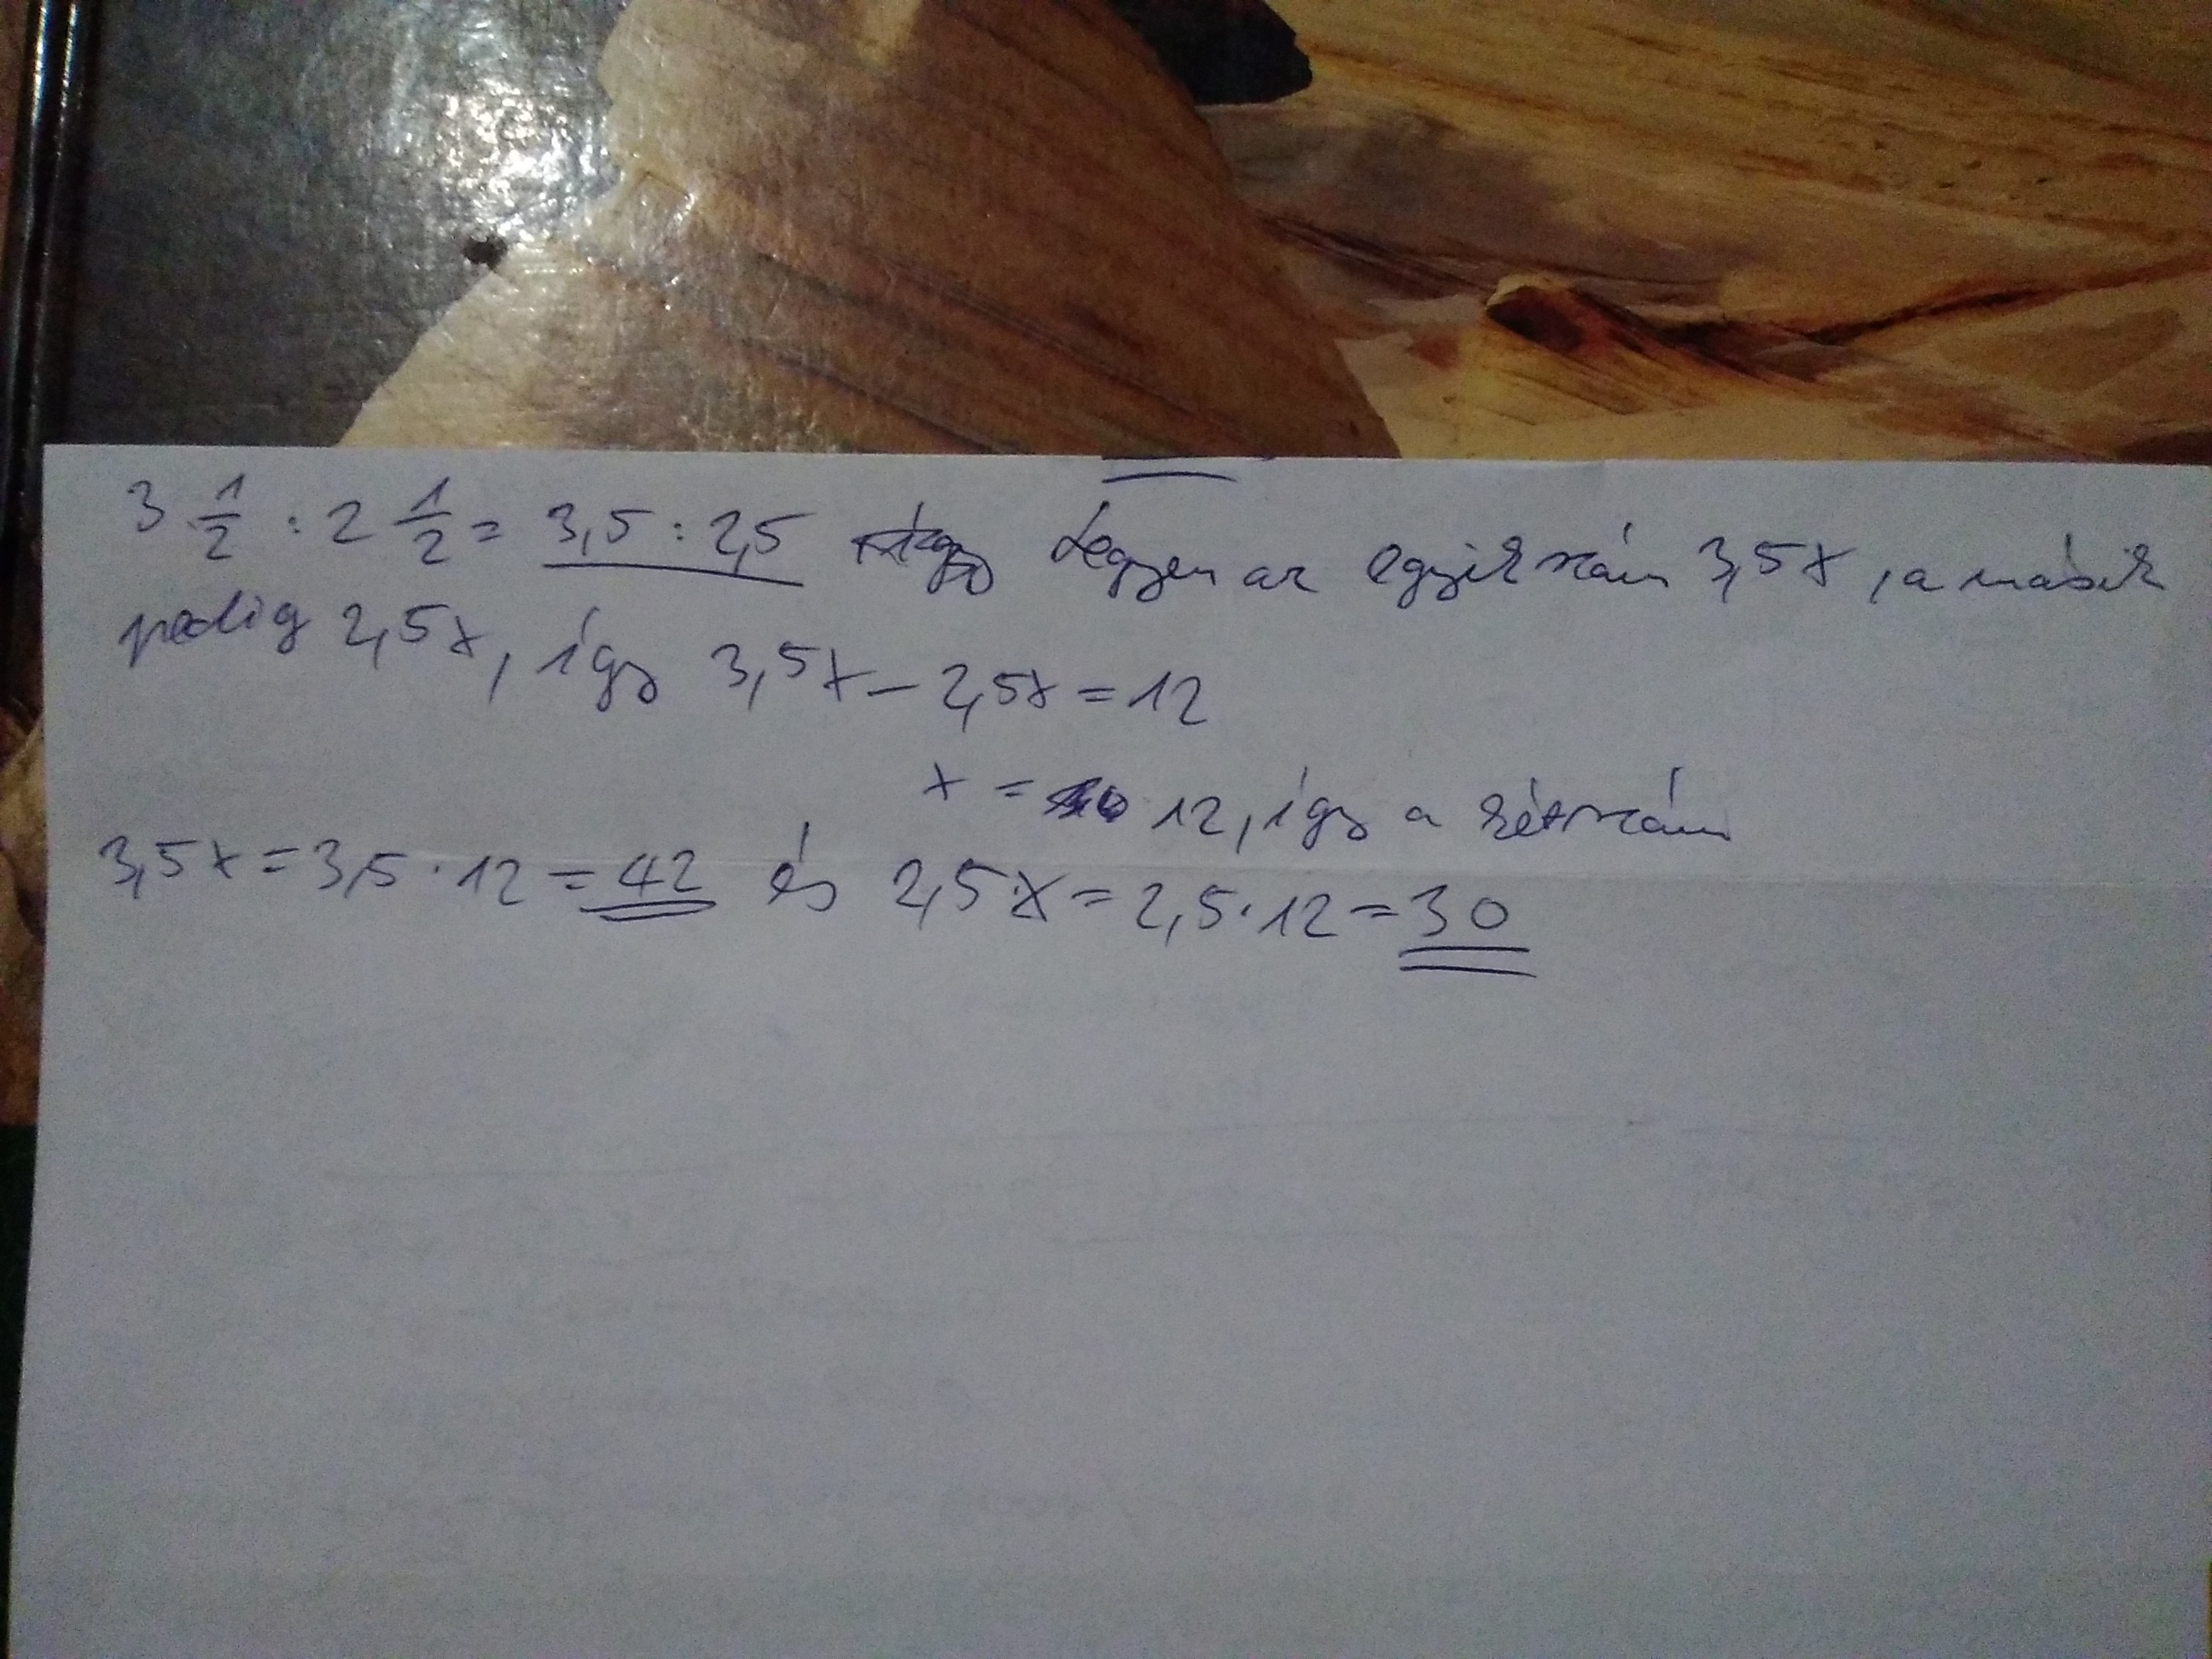 3 1/2 : 2 1/2 = 3,5 : 2,5 Legyen az egyik szám 3,5x, a másik
pedig 2,5x, így 3,5x – 2,5x = 12
x = 12, így a két szám
3,5x = 3,5 · 12 = 42 és 2,5x = 2,5 · 12 = 30